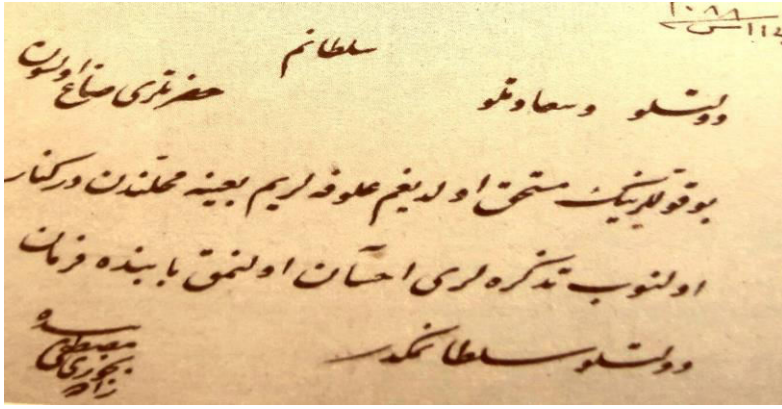 ١٠٨٨
دولتلو وسعادتلو سلطانم حضرتلرى صاغ اولسون
بو قوللرينك مستحق اولديغم علوفه لريم بعينه محلندن دركنار
اولنوب تذكره لرى احسان اولنمق بابنده فرمان
دولتلو سلطانمكدر
بنده
مصطفى